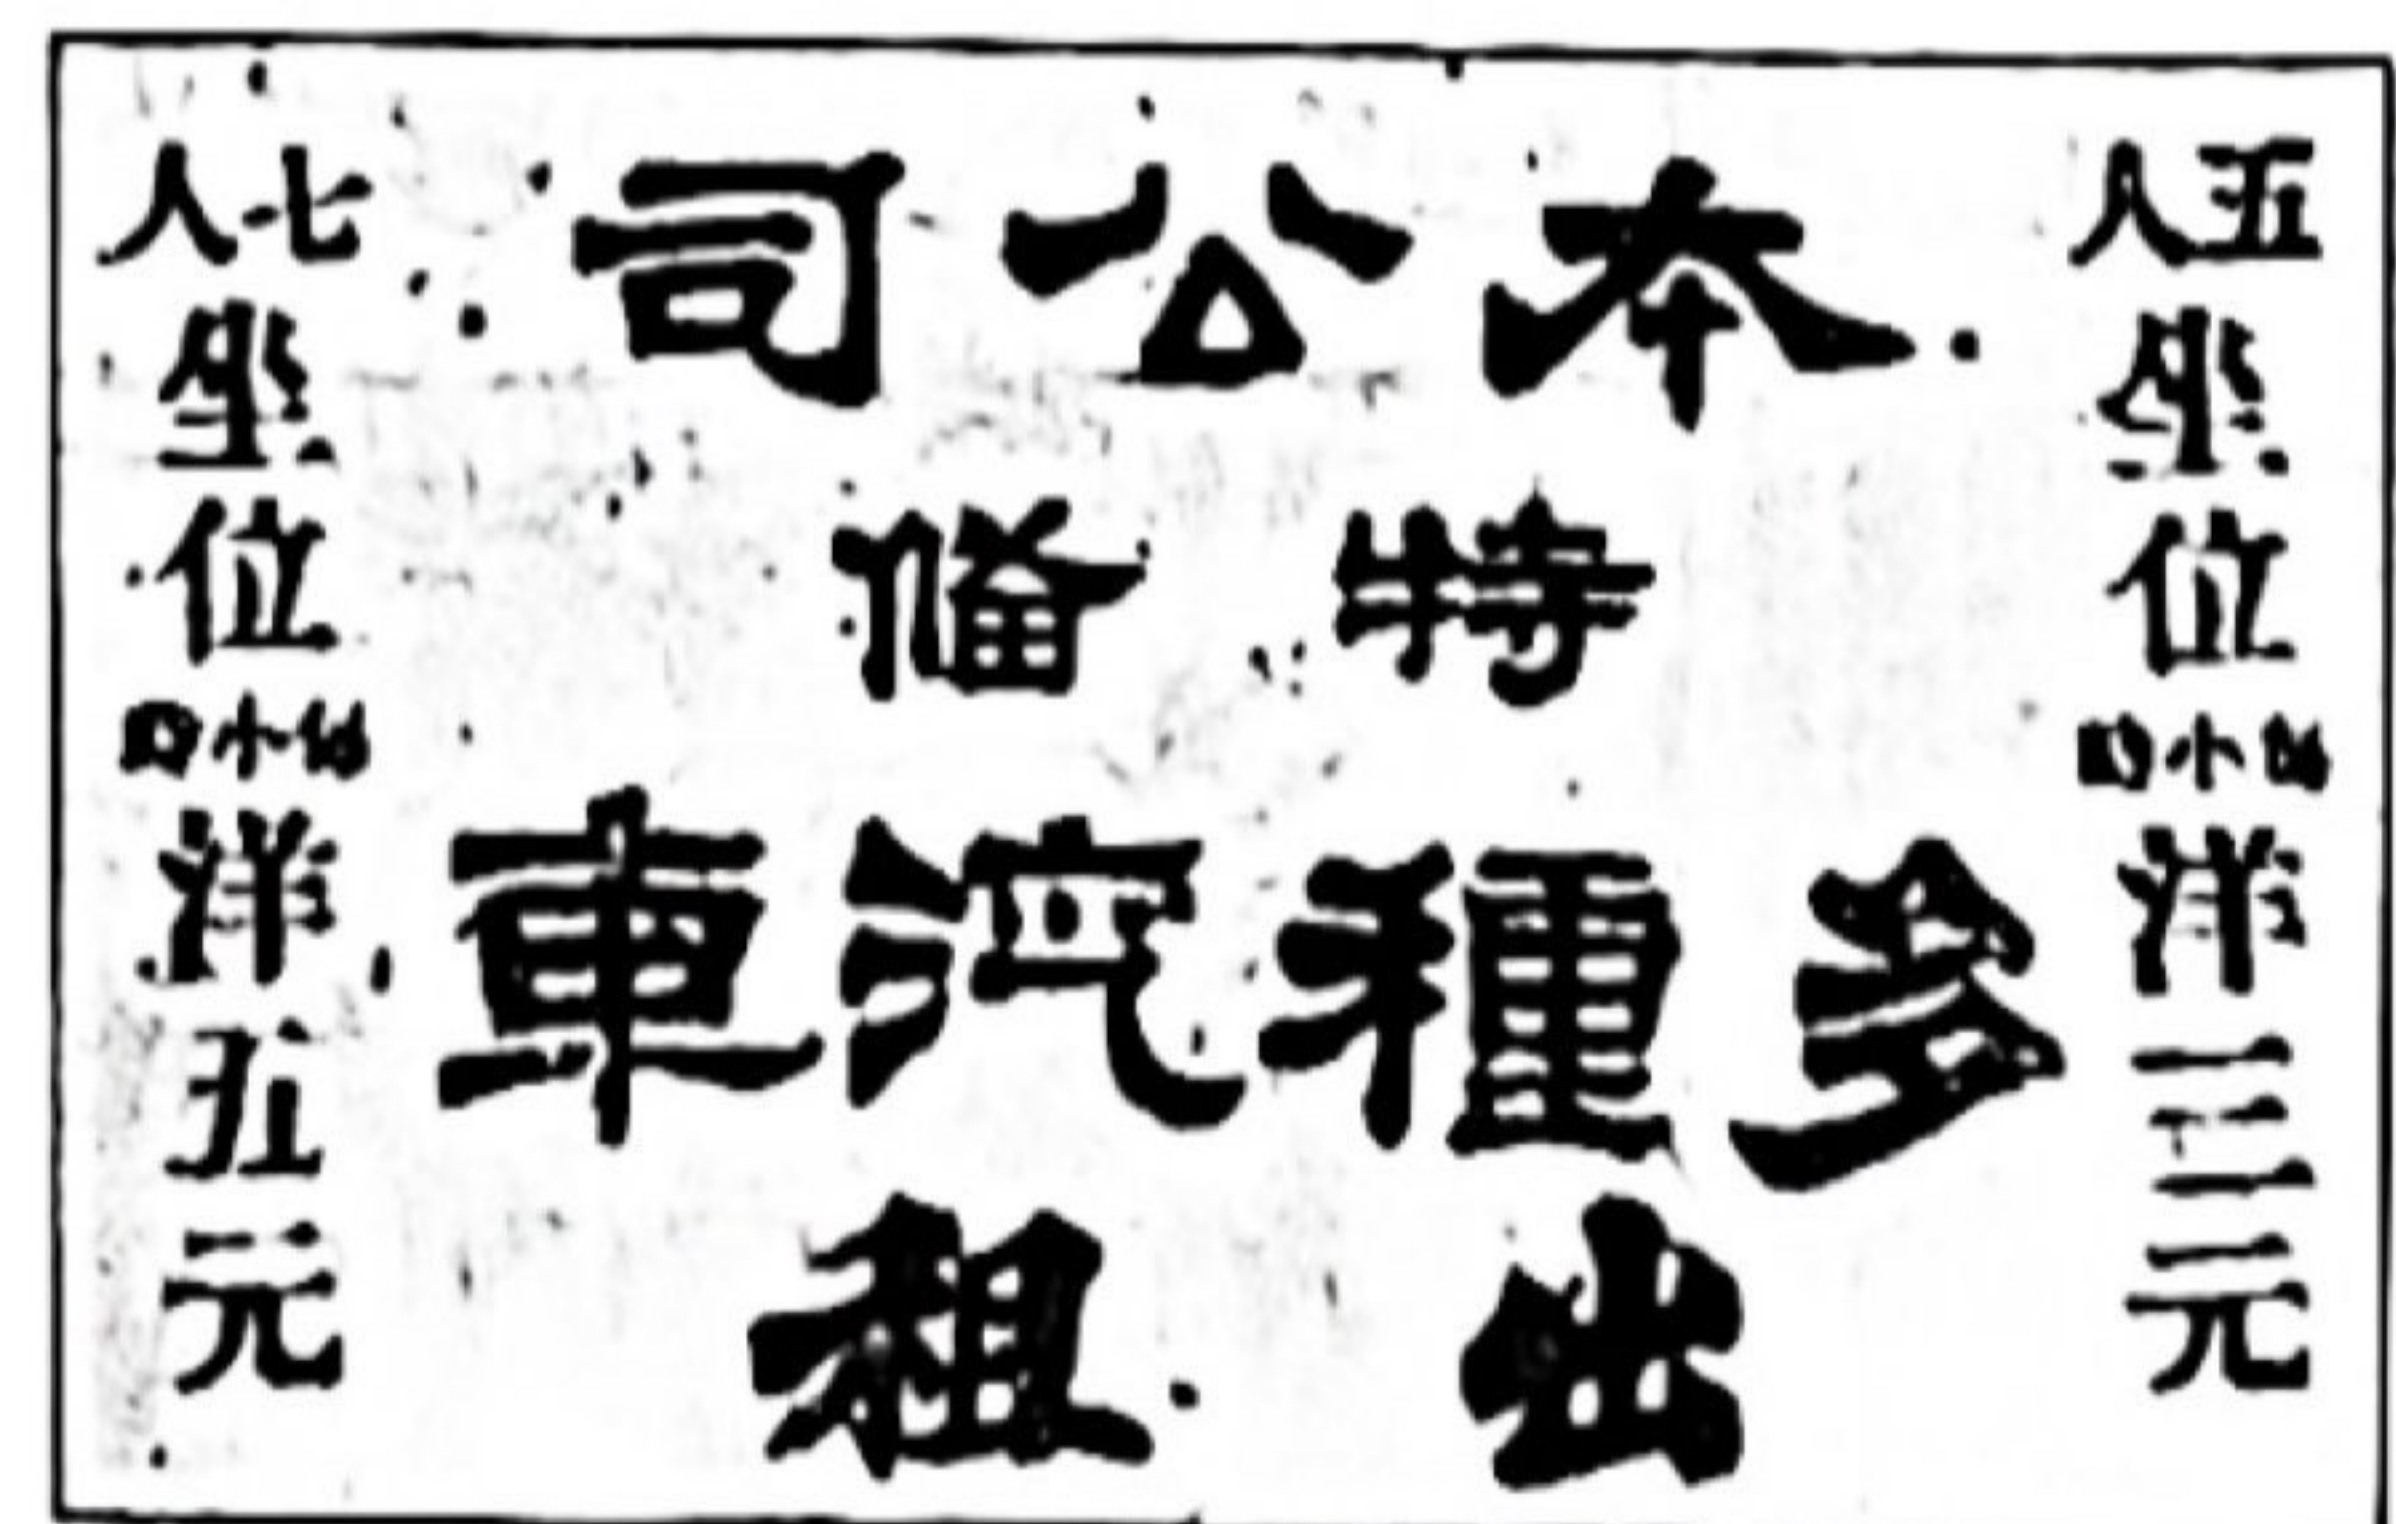 五人坐位每小時洋三元
本公司
特俻
多種汽車
出租
七人坐位每小時洋五元